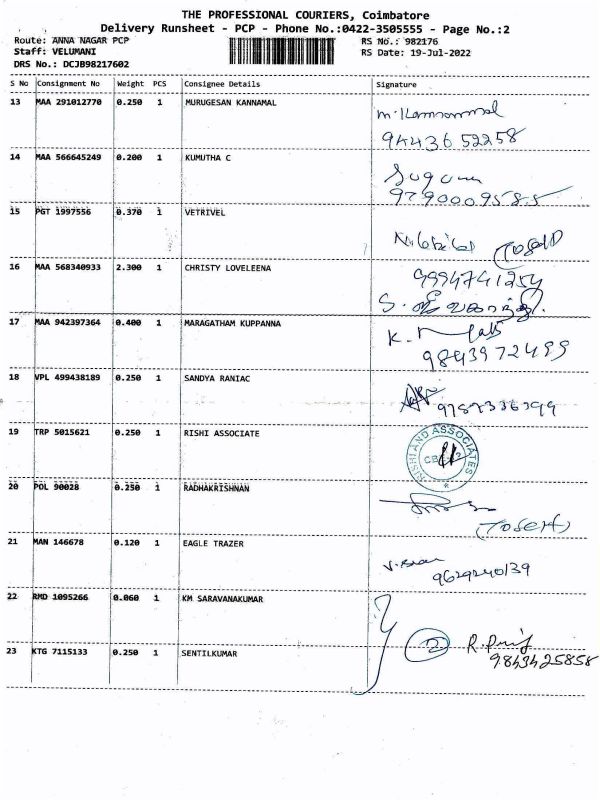 THE PROFESSIONAL COURIERS, Coimbatore
Delivery Runsheet - PCP - Phone No.:0422-3505555 - Page No.:2
Route: ANNA NAGAR PCP
RS No.: 982176
Staff: VELUMANI
RS Date: 19-Jul-2022
DRS No.: DCJB98217602
S No Consignment No Weight PCS Consignee Details Signature
13 MAA 291012770 0.250 1 MURUGESAN KANNAMAL
94436 52258
14 MAA 566645249 0.200 1 KUMUTHA C
15 PGT 1997556 0.370 1 VETRIVEL
16 MAA 568340933 2.300 1 CHRISTY LOVELEENA
9994741254
17 MAA 942397364 0.400 1 MARAGATHAM KUPPANNA
9843972499
18 VPL 499438189 0.250 1 SANDYA RANIAC
19 TRP 5015621 0.250 1 RISHI ASSOCIATE
RISHI AND ASSOCIATES
20 POL 90028 0.250 1 RADHAKRISHNAN
21 MAN 146678 0.120 1 EAGLE TRAZER
9629240139
22 RMD 1095266 0.060 1 KM SARAVANAKUMAR
2
23 KTG 7115133 0.250 1 SENTILKUMAR
9843425858